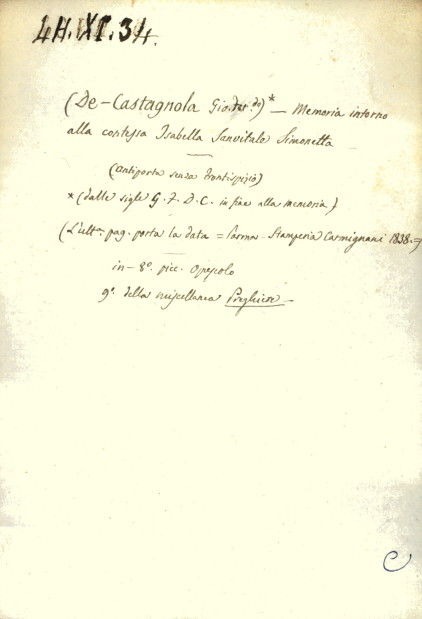 4H.XI.34.
(De-Castagnola Gio. Fer.do)* — Memoria intorno
alla contessa Isabella Sanvitale Simonetta
(antiporta senza frontispizio)
* (dalle sigle G. F. D. C. in fine alla memoria)
(L'ult.a pag. porta la data = Parma - Stamperia Carmignani 1838. =)
in-8°. picc. Opuscolo
9°. della miscellanea Preghiere —
C